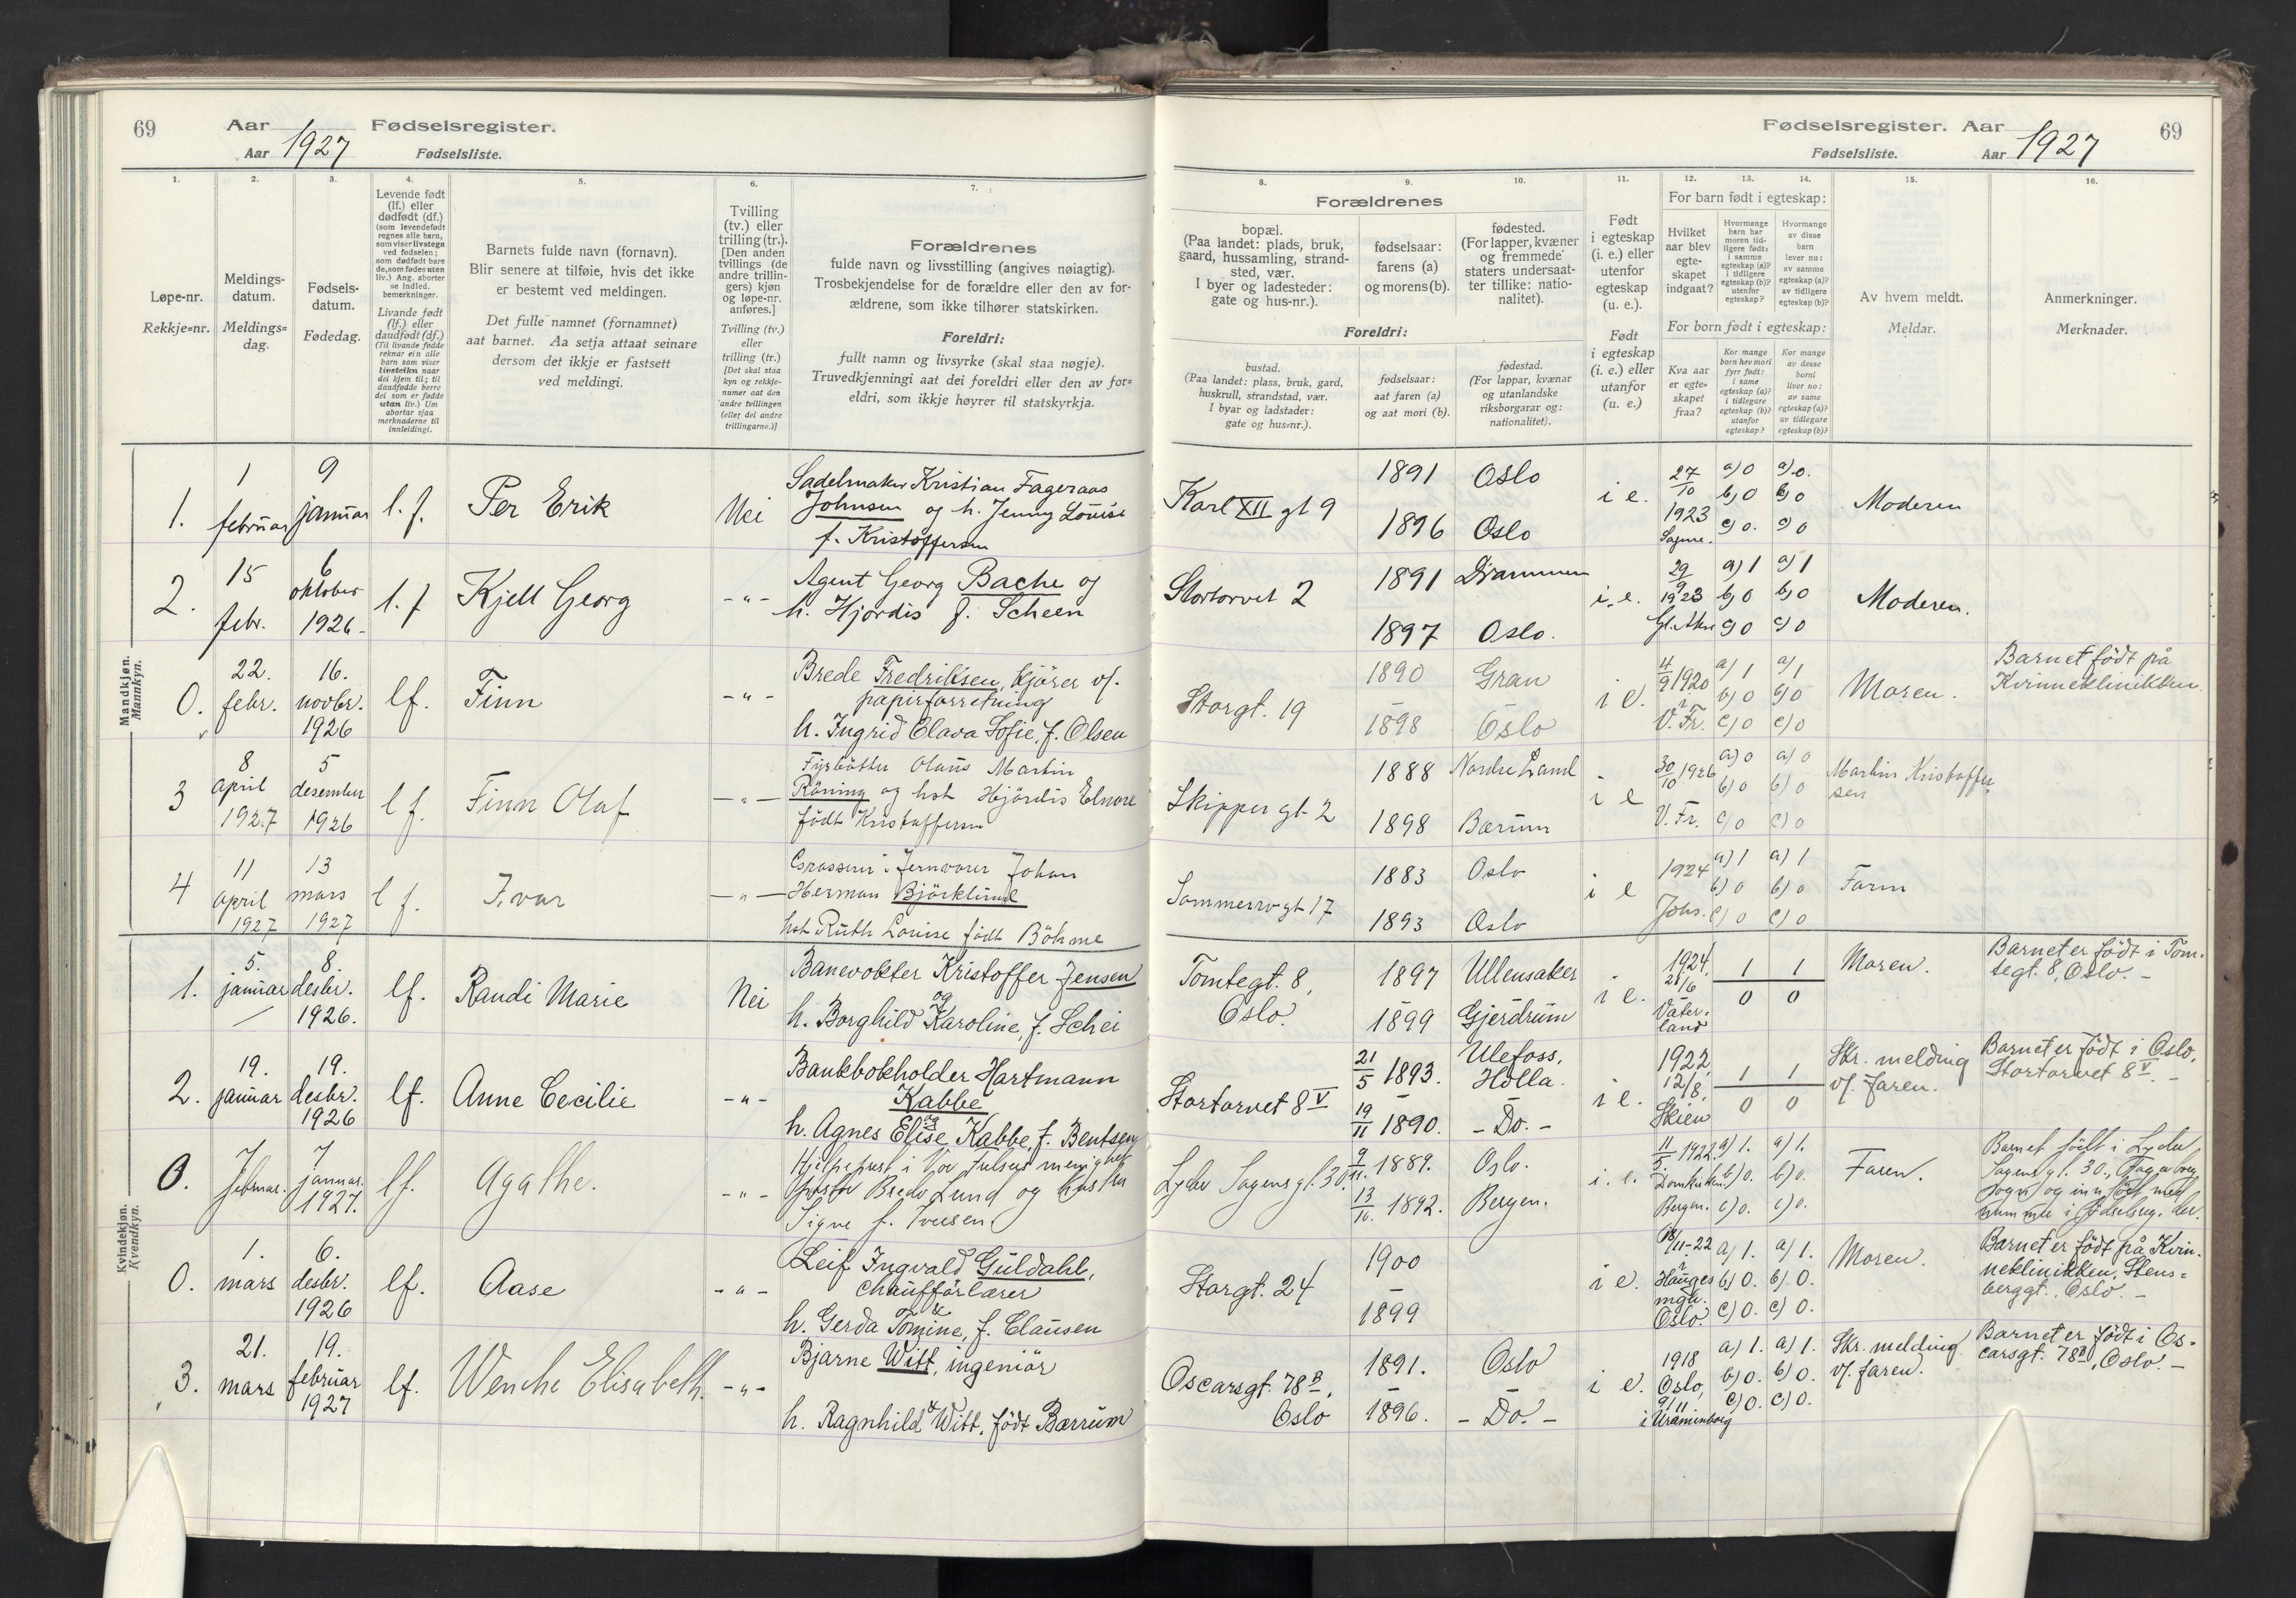 69
Aar
Fødselsregister.
Aar 1927
Fødselsliste.
1.
2.
3.
4.
5.
6.
7.
Løpe-nr.
Rekkje=nr.
Meldings-
datum.
Meldings=
dag.
Fødsels-
datum.
Fødedag.
Levende født
(lf.) eller
dødfødt (df.)
(som levendefødt
regnes alle barn,
som viser livstegn
ved fødselen;
som dødfødt bare
de, som fødes uten
liv.) Ang. aborter
se indled.
bemerkninger.
Livande født
(lf.) eller
daudfødt (df.)
(Til livande fødde
reknar ein alle
barn som viser
livsteikn naar
dei kjem til; til
daudfødde berre
dei som er fødde
utan liv.) Um
abortar sjaa
merknaderne til
innleidingi.
Barnets fulde navn (fornavn).
Blir senere at tilføie, hvis det ikke
er bestemt ved meldingen.
Det fulle namnet (fornamnet)
aat barnet. Aa setja attaat seinare
dersom det ikkje er fastsett
ved meldingi.
Tvilling
(tv.) eller
trilling (tr.).
[Den anden
tvillings (de
andre trillin-
gers) kjøn
og løpe-nr.
anføres.]
Tvilling (tv.)
eller
trilling (tr.)
[Det skal staa
kyn og rekkje-
numer aat den
andre tvillingen
(eller dei andre
trillingarne.)]
Forældrenes
fulde navn og livsstilling (angives nøiagtig).
Trosbekjendelse for de forældre eller den av for-
ældrene, som ikke tilhører statskirken.
Foreldri:
fullt namn og livsyrke (skal staa nøgje).
Truvedkjenningi aat dei foreldri eller den av for=
eldri, som ikkje høyrer til statskyrkja.
Mandkjøn.
Mannkyn.
1.
1
februar
9
januar
l. f.
Per Erik
Nei
Sadelmaker Kristian Fageraas
Johnsen og h. Jenny Louise
f. Kristoffersen
2.
15
febr.
6
oktober
1926-
l. f
Kjell Georg
-"-
Agent Georg Bache og
h. Hjordis f. Scheen
0.
22.
febr.
16.
novbr.
1926
lf.
Finn
-"-
Brede Fredriksen, kjörer v/.
papirforretning
h. Ingrid Olava Sofie, f. Olsen
3
8
april
1927
5
desember
1926
l f.
Finn Olaf
-"-
Fyrbötter Olaus Martin
Röning og hst Hjördis Elnore
født Kristoffersen
4
11
april
1927
13
mars
1927
l f.
Ivar
-"-
Grosserer i Jernvarer Johan
Herman Björklund
hst Ruth Louise født Böhme
Kvindekjøn.
Kvendkyn.
1.
5.
januar
8.
desbr.
1926.
lf.
Randi Marie
Nei
Banevokter Kristoffer Jensen
og
h. Borghild Karoline, f. Schei
2.
19.
januar
19.
desbr.
1926
lf.
Anne Cecilie
-"-
Bankbokholder Hartmann
Kabbe
og
h. Agnes Elise Kabbe, f. Bentsen
0.
7
februar.
7
januar.
1927.
lf.
Agathe.
-"-
Hjelpeprest i Vor Frelsers menighet
Bredo Lund og hustru
Signe f. Iversen
0.
1.
mars
6.
desbr.
1926
lf.
Aase
-"-
Leif Ingvald Guldahl,
chaufförlærer
&
h. Gerda Tomine, f. Clausen
3.
21.
mars
19.
februar
1927
lf.
Wenche Elisabeth.
-"-
Bjarne Witt, ingeniör
&
h. Ragnhild Witt, født Bærrum
Fødselsregister. Aar
69
Fødselsliste.
Aar 1927
8.
9.
10.
11.
12.
13.
14.
15.
16.
Forældrenes
bopæl.
(Paa landet: plads, bruk,
gaard, hussamling, strand-
sted, vær.
I byer og ladesteder:
gate og hus-nr.).
fødselsaar:
farens (a)
og morens (b).
fødested.
(For lapper, kvæner
og fremmede
staters undersaat-
ter tillike: natio-
nalitet).
Foreldri:
bustad.
(Paa landet: plass, bruk, gard,
huskrull, strandstad, vær.
I byar og ladstader:
gate og hus=nr.).
fødselsaar:
aat faren (a)
og aat mori (b).
fødestad.
(For lappar, kvænar
og utanlandske
riksborgarar og:
nationalitet).
Født
i egteskap
(i. e.) eller
utenfor
egteskap
(u. e.).
Født
i egteskap
(i. e.) eller
utanfor
(u. e.)
For barn født i egteskap:
Hvilket
aar blev
egte-
skapet
indgaat?
Hvormange
barn har
moren tid-
ligere født:
i samme
egteskap (a)?
i tidligere
egteskap (b)?
utenfor
egteskap?
Hvormange
av disse
barn
lever nu:
av samme
egteskap (a)?
av tidligere
egteskap (b)?
For born født i egteskap:
Kva aar
er egte=
skapet
fraa?
Kor mange
born hev mori
fyrr født:
i same
egteskap (a)?
i tidlegare
egteskap (b)?
utanfor
egteskap?
Kor mange
av desse
borni
liver no:
av same
egteskap (a)?
av tidlegare
egteskap (b)?
Av hvem meldt.
Meldar.
Anmerkninger.
Merknader.
Karl XII gt 9
1891
1896
Oslo
Oslo
i e.
27/10
1923
Sagene.
a) 0
b) 0
c) 0.
a) 0.
b) 0
c) 0
Moderen
Stortorvet 2
1891
1897
Drammen
Oslo.
i. e.
29/9
1923
Gl. Aker
a) 1
b) 0
c) 0
a) 1
b) 0
c) 0
Moderen.
Storgt. 19
1890
-
1898
Gran
-
Oslo
i e.
4/9 1920
i
V. Fr.
a) 1
b) 0
c) 0
a) 1
b) 0
c) 0
Moren.
Barnet födt på
Kvinneklinikken.
Skipper gt. 2
1888
1898
Nordre Land
Bærum
i e
30/10 1926
V. Fr.
a) 0
b) 0
c) 0
a) 0
b) 0
c) 0
Martin Kristoffer
sen
Sommerro gt 17
1883
1893
Oslo
Oslo
i e
1924
Johs.
a) 1
b) 0
c) 0
a) 1
b) 0
c) 0
Faren
Tomtegt. 8,
Oslo.
1897
-
1899
Ullensaker
-
Gjerdrum
i e.
1924.
28/6
Vater-
land
1
0
1
0
Moren.
Barnet er födt i Tom-
tegt. 8, Oslo. -
Stortorvet 8 V
21/5 1893.
19/11 1890.
Ulefoss,
Holla.
- Do. -
i e.
1922,
12/8,
Skien
1
0
1
0
Skr. melding
v/. faren.
Barnet er födt i Oslo,
Stortorvet 8 V. -
Lyder Sagens gt. 30
9/11. 1889.
13/10. 1892.
Oslo.
Bergen.
i. e.
11/5 1922.
Domkirken
Bergen.
a) 1.
b) 0.
c) 0.
a) 1.
b) 0.
c) 0.
Faren.
Barnet født i Lyder
Sagens gt. 30, Fagerborg
sogn og innført med
nummer i fødselsreg. der.
Storgt. 24
1900
-
1899
i e.
18/11-22
i
Hauges
mgh.
Oslo.
a) 1.
b) 0.
c) 0.
a) 1.
b) 0.
c) 0.
Moren.
Barnet er födt på Kvin-
neklinikken, Stens=
berggt., Oslo. -
Oscarsgt. 78 B,
Oslo
1891.
-
1896.
Oslo
-
- Do. -
i e.
1918
Oslo,
9/11
i Uranienborg
a) 1.
b) 0.
c) 0.
a) 1.
b) 0.
c) 0.
Skr. melding
v/. faren.
Barnet er födt i Os-
carsgt. 78 B, Oslo. -